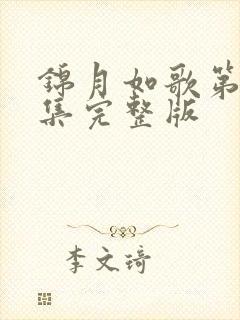 錦月如歌第
集完整版
李文琦